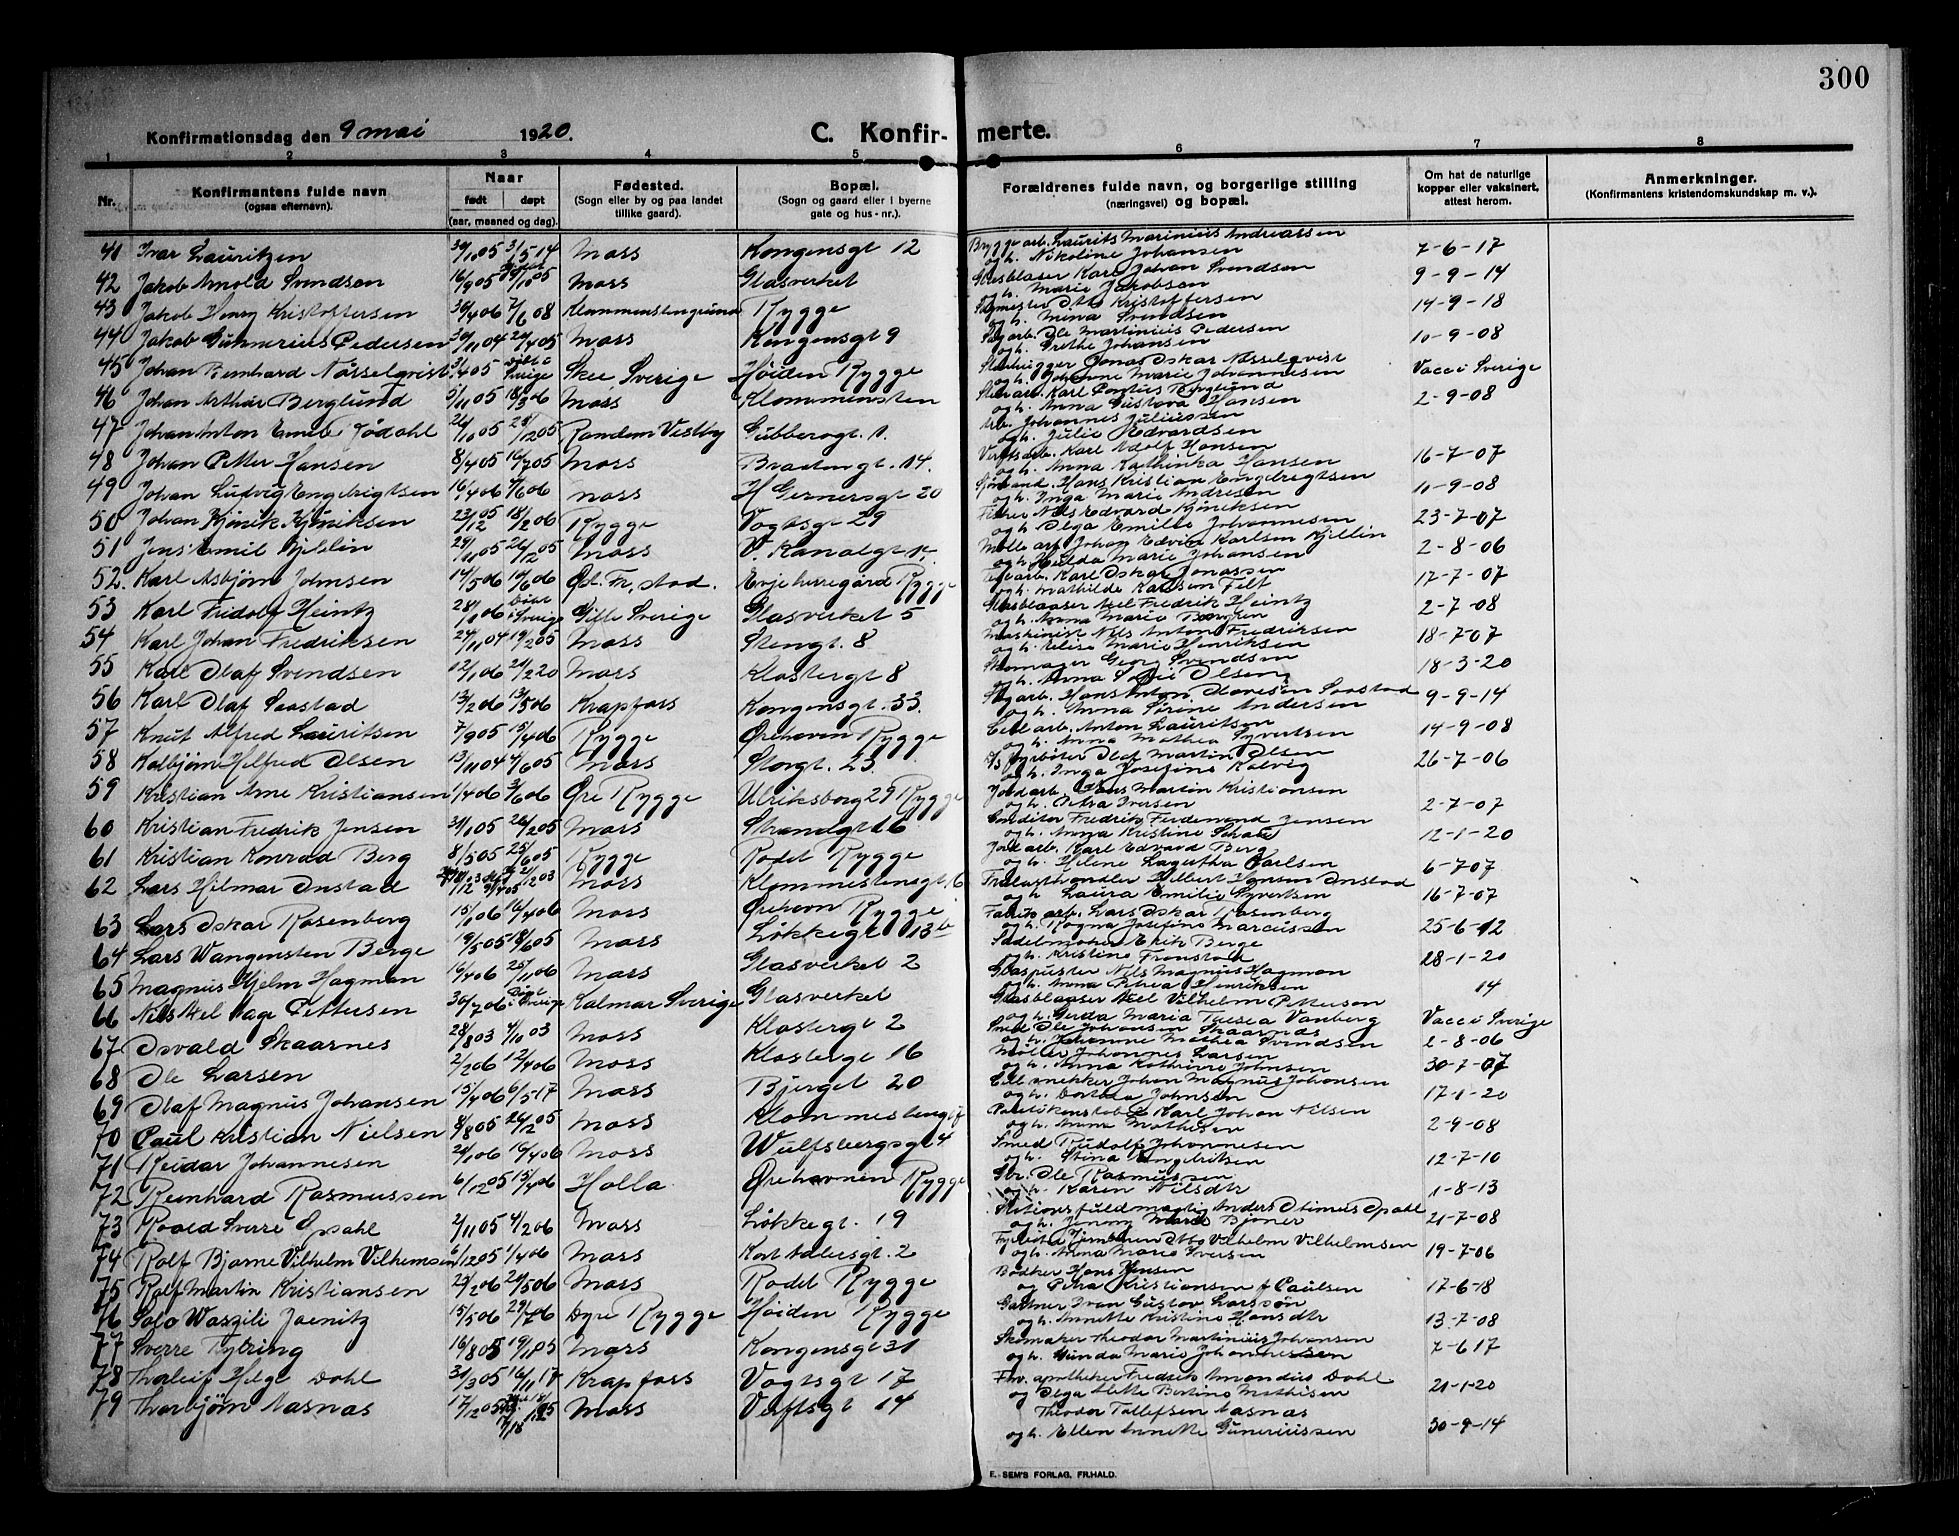 300
Konfirmationsdag den 9 mai 1920. C. Konfir- merte.
1 2 3 4 5 6 7 8
Nr. Konfirmantens fulde navn (ogsaa efternavn). Naar født døpt (aar, maaned og dag). Fødested. (Sogn eller by og paa landet tillike gaard). Bopæl. (Sogn og gaard eller i byerne gate og hus-nr.). Forældrenes fulde navn, og borgerlige stilling (næringsvei) og bopæl. Om hat de naturlige kopper eller vaksinert, attest herom. Anmerkninger. (Konfirmantens kristendomskundskap m. v.).
41 Ivar Lauritzen 30/10 05 31/5 14 Moss Kongensgt 12 Bryggearb. Laurits Marinius Andreassen og h. Nikoline Johansen 7-6-17
42 Jakob Arnold Svendsen 16/9 05 Moss Glasverket Glasblaser Karl Johan Svendsen og h. Marie Jacobsen 9-9-14
43 Jakob Henry Kristoffersen 30/4 06 7/6 08 Klommenstengrund Rygge Otto Kristoffersen og h. Mina Svendsen 14-9-18
44 Jakob Gunnerius Pedersen 30/11 04 24/4 05 Moss Kongensgt 9 Sagarb. Ole Martinius Pedersen og h. Grethe Johansen 10-9-08
45 Johan Bernhard Nässelqvist 3/4 05 døbt i Sverige Skee Sverige Høiden Rygge Stenhugger Jonas Oskar Nässelqvist og h. Johanne Marie Johannesen Vacc i Sverige
46 Johan Arthur Berglund 5/11 05 18/3 06 Moss Klommensten Karl Pontus Berglund og h. Anna Gustava Hansen 2-9-08
47 Johan Anton Emil Jødahl 26/10 05 25/12 05 Randem Vestby Gubberogt. 1. Arb. Johannes Juliussen og h. Julie Edvardsen
48 Johan Petter Hansen 8/4 05 16/7 05 Moss Braatengt. 14. Verftsarb. Karl Adolf Hansen og h. Anna Kathinka Hansen 16-7-07
49 Johan Ludvig Engebrigtsen 16/4 06 4/6 06 Moss H Gernersgt 20 Sjømand. Hans Kristian Engebregtsen og h. Inga Marie Andresen 10-9-08
50 Johan Kjönik Kjöniksen 23/12 05 18/2 06 Rygge Vogtsgt 29 Fisker Nils Edvard Kjöniksen og h. Olga Emilie Johannesen 23-7-07
51 Jens Emil Kjellin 29/11 05 26/12 05 Moss V. Kanalgt 1. Mølle arb Johan Edvin Karlson Kjellin og h. Hulda Marie Johansen 2-8-06
52. Karl Asbjørn Johnsen 14/5 06 10/6 06 Gl. Fr. stad. Evje herregård Rygge Karl Oskar Jonassen og h. Mathilde Karlsen Felt 17-7-07
53 Karl Fridolf Heintz 28/1 06 døbt i Sverige Gilte Sverige Glasverket 5 Glasblaaser Axel Fredrik Heintz og h. Anna Marie Berggren 2-7-08
54 Karl Johan Fredriksen 24/11 04 19/2 05 Moss Stengt. 8 Maskinist Nils Anton Fredriksen og h. Elise Marie Henriksen 18-7-07
55 Karl Olaf Svendsen 12/1 06 24/2 20 Moss Klostergt 8 Skomager Georg Svendsen og h. Anna Sofie Olsen 18-3-20
56 Karl Olaf Saastad 13/2 06 13/5 06 Krapfoss Kongensgt. 33. Sagarb. Hans Anton Olavesen Saastad og h. Anna Sørine Andersen 9-9-14
57 Knut Alfred Lauritsen 7/9 05 15/4 06 Rygge Ørehavn Rygge Cell arb. Anton Lauritsen og h. Anna Mathea Syvertsen 14-9-08
58 Kolbjørn Hilfred Olsen 13/11 04 4/6 05 Moss Storgt. 23. Fyrbøter Olaf Martin Olsen og h. Inga Josefine Kolvig 26-7-06
59 Kristian Arne Kristiansen 1/4 06 3/6 06 Øre Rygge Ulriksborg 29 Rygge Jordarb. Hans Martin Kristiansen og h. Petra Iversen 2-7-07
60 Kristian Fredrik Jensen 31/1 05 26/2 05 Moss Strandgt 16 Conditor Fredrik Ferdinand Jensen og h. Anna Kristine Schatz 12-1-20
61 Kristian Konrad Berg 8/5 05 25/6 05 Rygge Rødet Rygge Jordarb. Karl Edvard Berg og h. Helene Lagertha Carlsen 6-7-07
62 Lars Hilmar Onstad Moss Klommestensgt 6 Trælasthandler Hilbert Hansen Onstad og h Laura Emilie Syvertsen 16-7-07
63 Lars Oskar Rosenberg 15/1 06 16/4 06 Moss Ørehavn Rygge Fabrik arb. Lars Oskar Rosenberg og h. Ragna Josefine Marcussen 25-6-12
64 Lars Wangensten Berge 19/3 05 18/6 05 Moss Løkkegt 13 b Sadelmaker Erik Berge og h. Kristine Fronstad 28-1-20
65 Magnus Hjelm Hagman 16/4 06 25/11 06 Moss Glasverket 2 Glaspuster Nils Magnus Hagman og h. Anna Petrea Henriksen 14
66 Nils Axel Aage Pettersen 30/7 06 Døbt i Sverige Kalmar Sverige Glasverket Glasblaaser Axel Vilhelm Petterson og h. Gerda Maria Teresa Vanberg Vacc i Sverige
67 Osvald Skaarnes 28/8 03 4/10 03 Moss Klostergt 2 Smed Ole Johansen Skaarnes og h. Johanne Mathea Svendsen 2-8-06
68 Ole Larsen 2/2 06 12/4 06 Moss Klostergt 16 Møller Johannes Larsen og h. Anna Kathrine Johnsen 30-7-07
69 Olaf Magnus Johansen 15/4 06 6/5 17 Moss Bjerget 20 Cell snekker Johan Magnus Johansen og h. Dorthea Johnsen 17-1-20
70 Paul Kristian Nielsen 8/8 05 26/12 05 Moss Klommestengt Karl Johan Nilsen og h. Anna Mathisen 2-9-08
71 Reidar Johannesen 24/1 06 16/4 06 Moss Wulfsbergsgt 4 Smed Rudolf Johannesen og h. Stina Engebriksen 12-7-10
72 Reinhard Rasmussen 6/12 05 15/4 06 Holla. Ørehavnen Rygge Str. Ole Rasmussen og h. Karen Nilsdtr 1-8-13
73 Roald Sverre Opdahl 2/11 05 4/2 06 Moss Løkkegt. 19 Stationsfuldmægtig Anders Otinius Opdahl og h. Jenny Marie Bjoner 21-7-08
74 Rolf Bjarne Vilhelm Vilhemsen 6/12 05 1/4 06 Moss Kort Adlersgt. 2 Otto Vilhelm Vilhelmsen og h. Anna Marie Iversen 19-7-06
75 Rolf Martin Kristiansen 23/2 06 24/5 06 Moss Rødet Rygge Bødker Hans Jensen og Petra Kristiansen f Paulsen 17-6-18
76 Salo Waszili Joenitz 15/5 06 29/7 06 Dyre Rygge Høiden Rygge Gartner Ivan Gustov Larsson og h. Annette Kristine Hansdtr 13-7-08
77 Sverre Tytring 16/8 05 19/11 05 Moss Kongensgt 31 Skomaker Theodor Martinius Johansen og h. Gunda Marie Johannessen 7-6 17
78 Thoralf Helge Dahl 31/3 05 16/11 17 Krapfoss Vogtsgt 17 Fhv. apotheker Fredrik Amandus Dahl og Olga Alette Bertine Mathisen 21-1-20
79 Thorbjørn Aasnas 17/12 05 Moss Verftsgt 14 Theodor Tollefsen Aasnas og h. Ellen Annette Guneriussen 30-9-14
E. SEM'S FORLAG, FR.HALD.